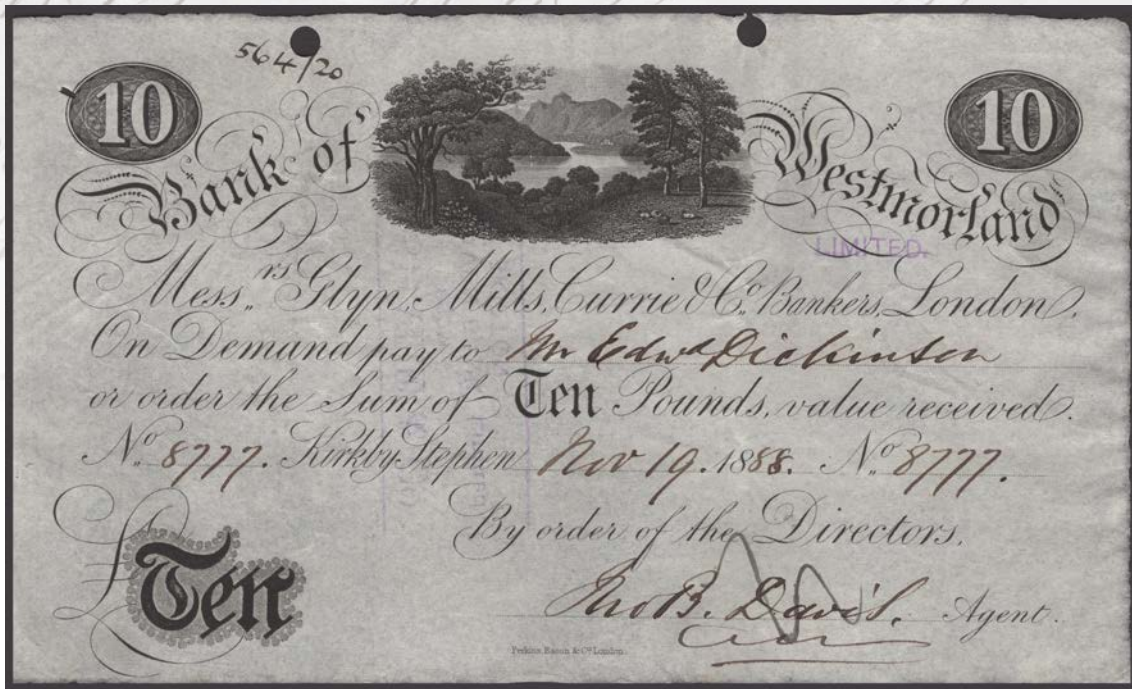 564/20
10 10
Bank of Westmorland
LIMITED.
Mess.rs Glyn, Mills, Currie & Co. Bankers, London.
On Demand pay to Mr Edwd Dickinson
or order the Sum of Ten Pounds, value received.
No. 8777. Kirkby Stephen Nov 19. 1888. No. 8777.
By order of the Directors,
£Ten
Jno B. Davis. Agent.
Perkins, Bacon & Co. London.